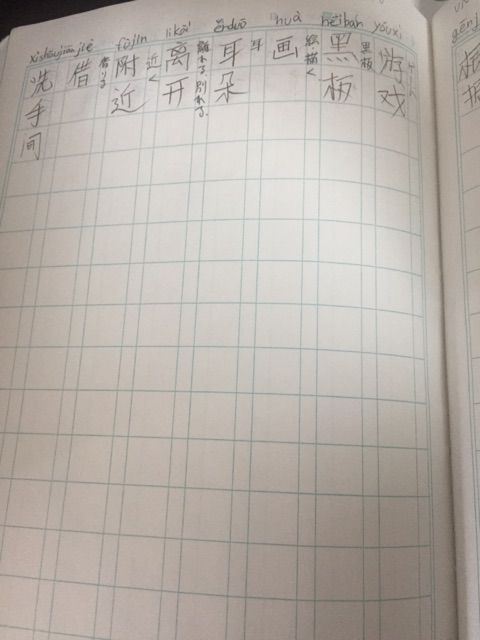 yóuxì
游戏
ゲーム
hēibǎn
黑柄
黒板
huà
画
絵描く
ěrduō
耳朵
耳
líkāi
离开
離れる 別れる
fùjìn
附近
近く
jiè
借
借りる
xǐshǒujiān
洗手间